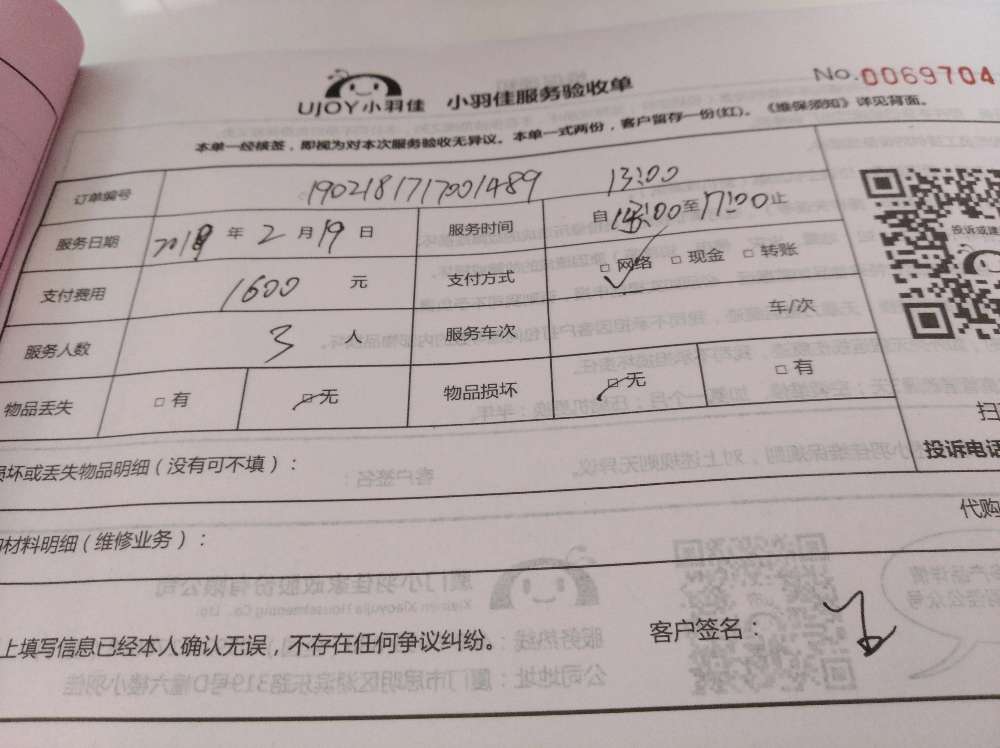 UJOY小羽佳 小羽佳服务验收单 No.0069704
本单一经核签，即视为对本次服务验收无异议。本单一式两份，客户留存一份(红)。《维保须知》详见背面。
订单编号 1902181717001489 13:00
服务日期 2019 年 2 月 19 日 服务时间 自 13:00 至 17:00 止
支付费用 1600 元 支付方式 □ 网络 □ 现金 □ 转账
服务人数 3 人 服务车次 车/次
物品丢失 □ 有 □ 无 物品损坏 □ 无 □ 有
投诉或建
扫
投诉电话
损坏或丢失物品明细（没有可不填）：
代购
材料明细（维修业务）：
上填写信息已经本人确认无误，不存在任何争议纠纷。 客户签名：